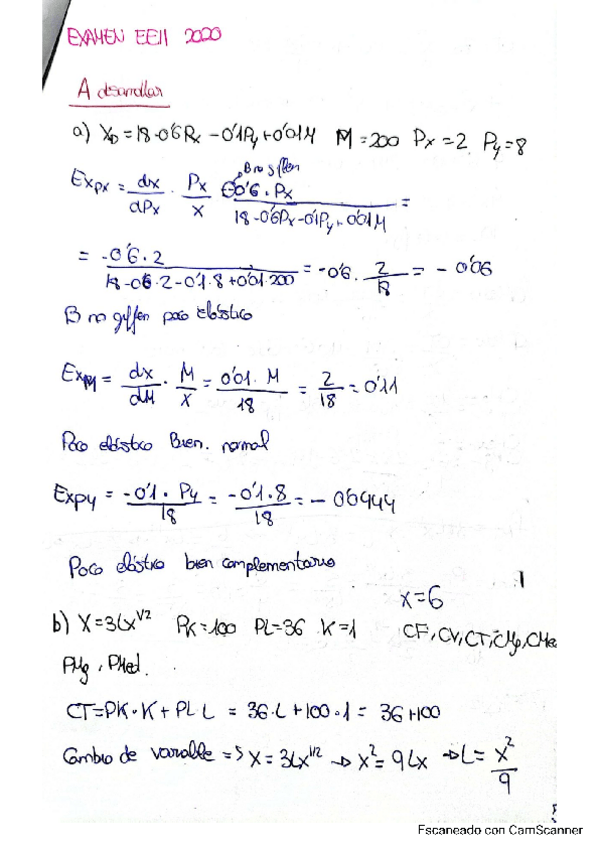 EXAMEN EEII 2020
A desarrollar
a) XD = 18-0'6Px - 0'1Py + 0'01M M = 200 Px = 2 Py = 8
B no giffen
Expx = dx/dPx · Px/x = -0'6 · Px / 18-0'6Px-0'1Py+0'01M =
= -0'6·2 / 18-0'6·2-0'1·8+0'01·200 = -0'6 · 2/18 = - 0'06
B no giffen poco elástico
ExpM = dx/dM · M/X = 0'01·M / 18 = 2/18 = 0'11
Poco elástico Bien. normal
Expy = -0'1·Py / 18 = -0'1·8 / 18 = - 0'0444
Poco elástico bien complementario
x=6
b) X = 3Lx^1/2 PK = 100 PL = 36 K = 1 CF, CV, CT, CMg, CMe
PMg, PMed.
CT = PK·K + PL·L = 36·L + 100·1 = 36+100
Cambio de variable => X = 3Lx^1/2 → x² = 9Lx → L = x²/9
Escaneado con CamScanner